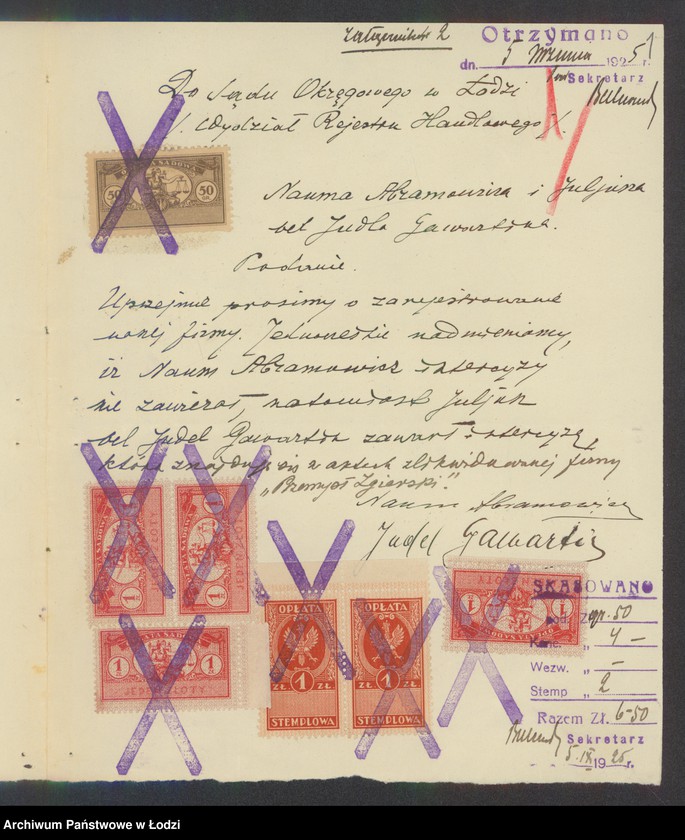 Załączników 2
Otrzymano
dn. 5 Września 1925 r.
Sekretarz
Do Sądu Okręgowego w Łodzi
/. Wydział Rejestru Handlowego /.
50 50
Nauma Abramowicza i Juljusza
vel Judla Gawartina.
Podanie.
Uprzejmie prosimy o zarejestrowanie
nowej firmy. Jednocześnie nadmieniamy,
iż Naum Abramowicz intercyzy
nie zawierał, natomiast Juljusz
vel Judel Gawartin zawarł intercyzę,
która znajduje się w aktach zlikwidowanej firmy
„Przemysł Zgierski".
Naum Abramowicz
Judel Gawartin
1 1
1 1
OPŁATA OPŁATA
ZŁ 1 ZŁ ZŁ 1 ZŁ
STEMPLOWA STEMPLOWA
SKASOWANO
gr. 50
Kanc. „ 4 –
Wezw. „ –
Stemp „ 2
Razem Zł. 6-50
Sekretarz
5.IX 1925 r.
Archiwum Państwowe w Łodzi